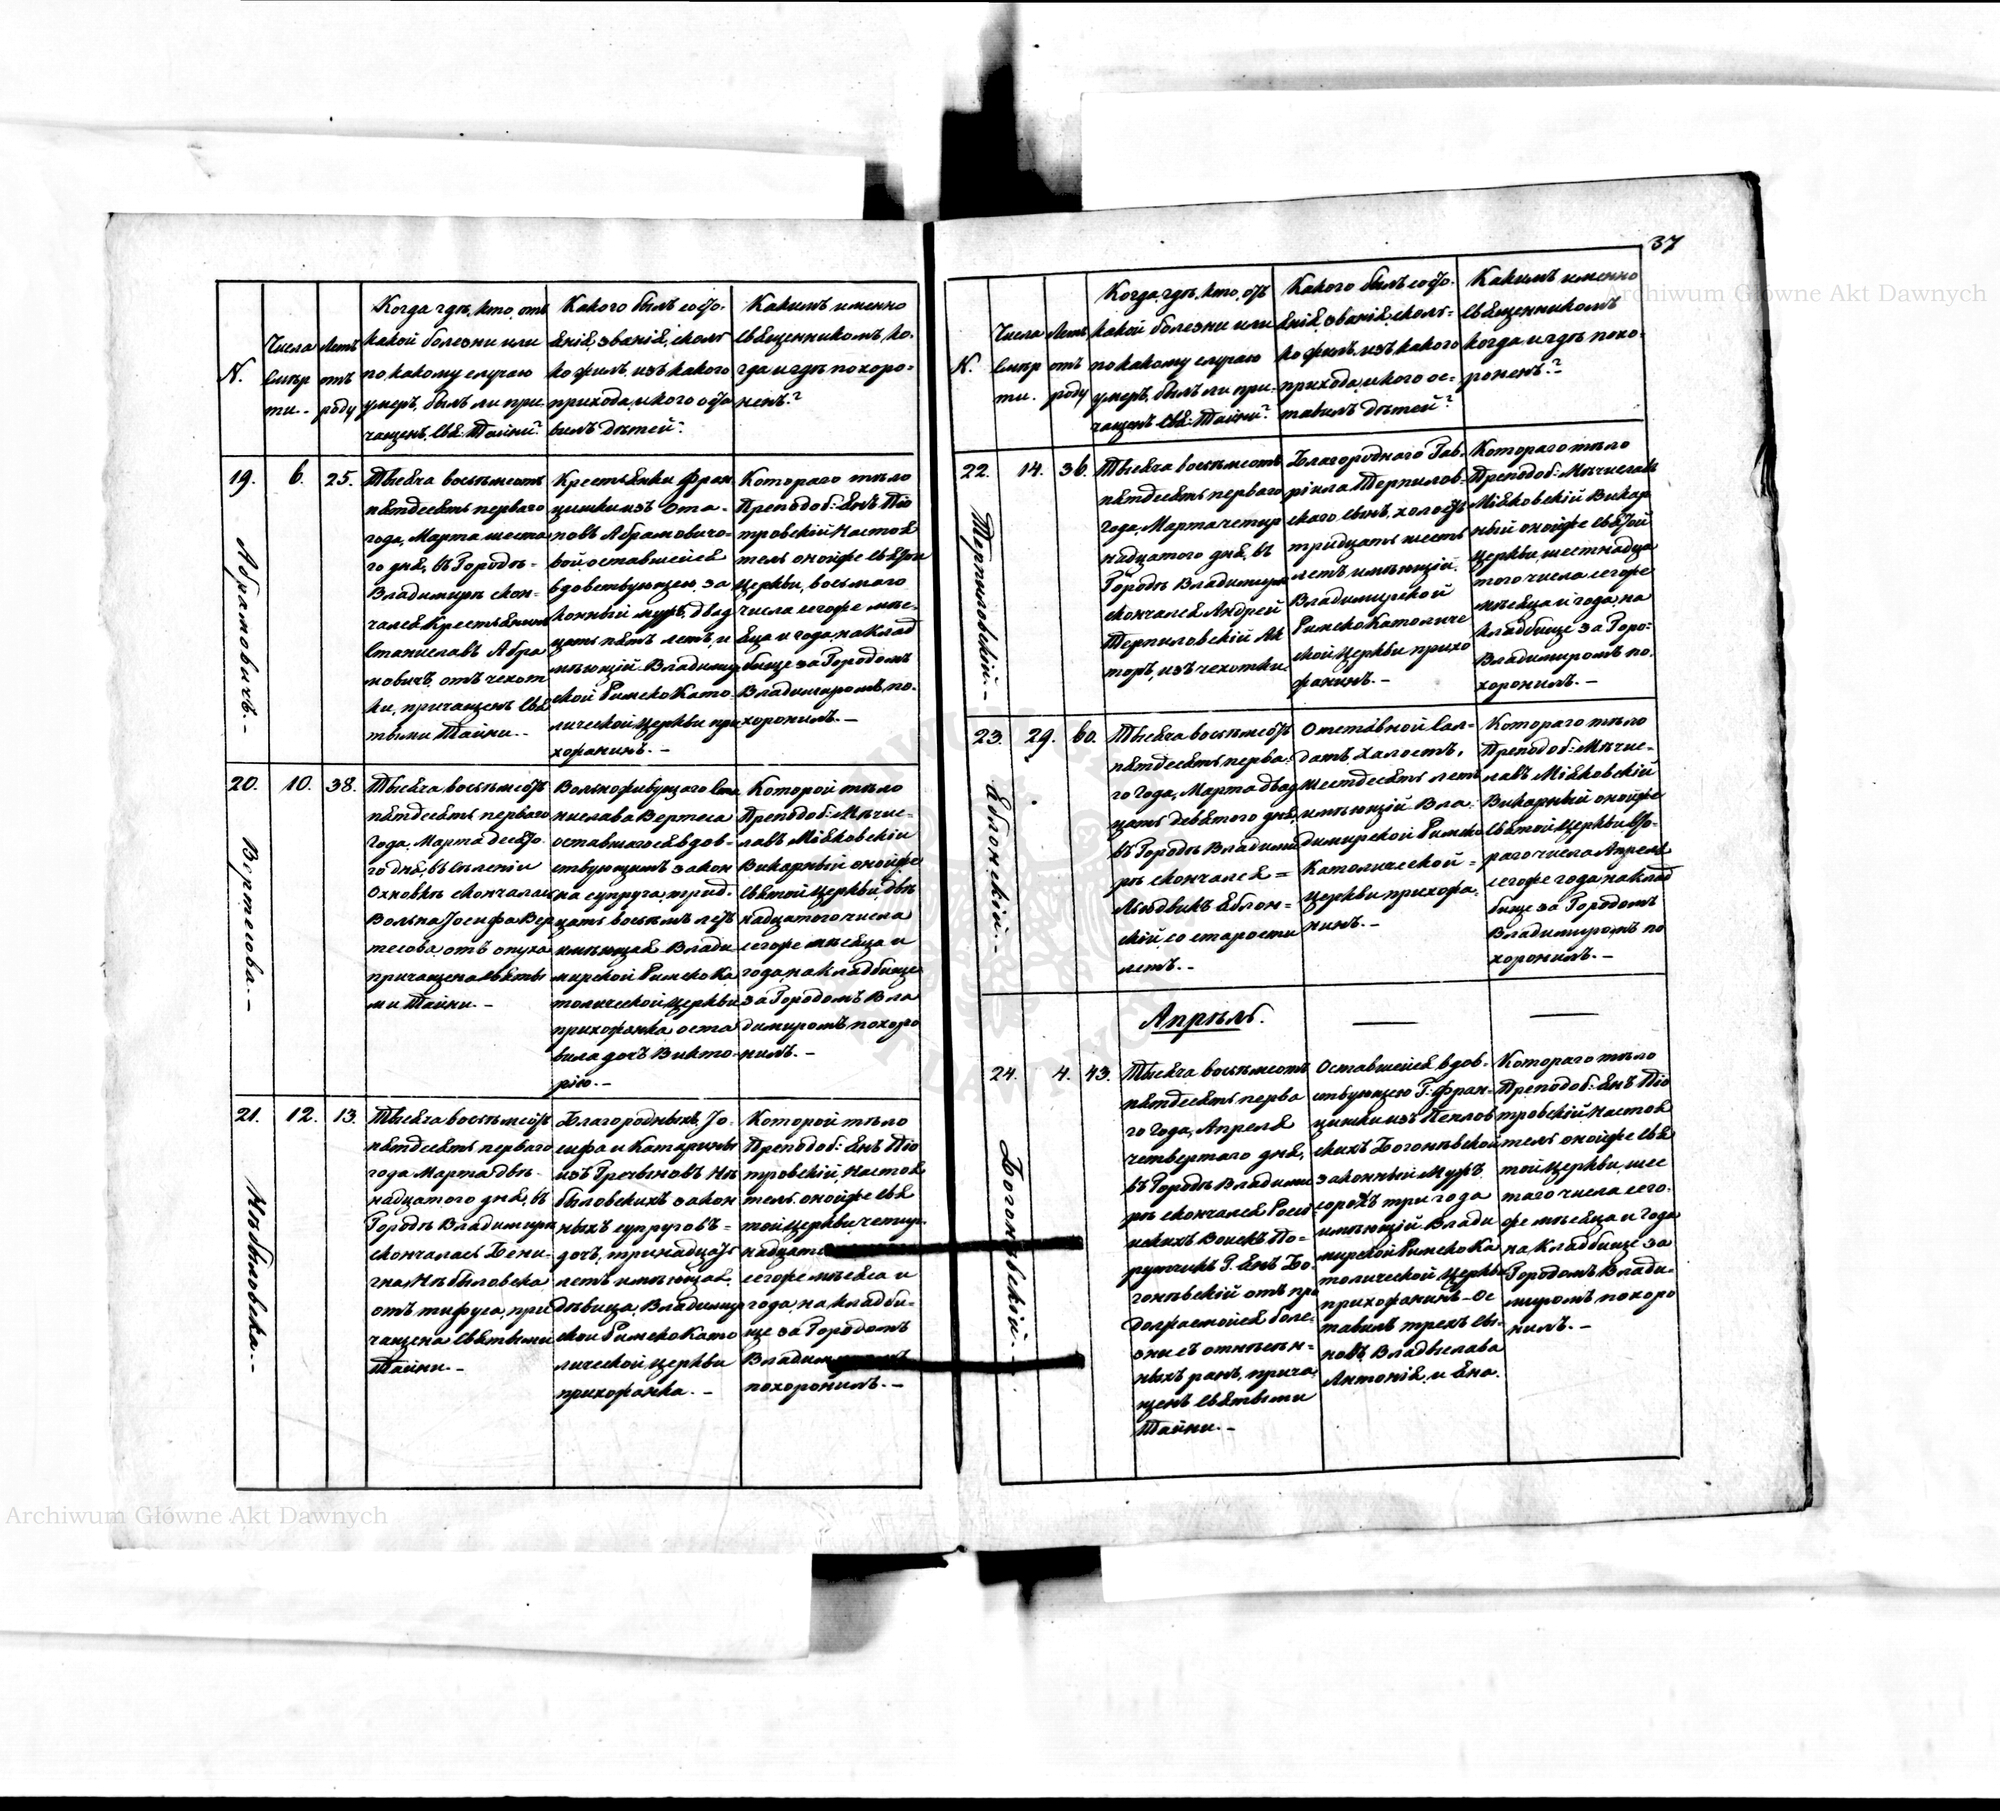 37
Archiwum Główne Akt Dawnych
N.
Числа
Смер
ти.-
Летъ
отъ
роду
Когда, гдѣ, кто, отъ
какой болезни или
по какому случаю
умеръ, былъ ли при-
чащенъ Свя: Тайни?
Какого былъ состо-
янія, званія, сколь
ко жилъ, изъ какого
прихода, и кого оста
вилъ дѣтей?
Какимъ именно
Священникомъ, ко-
гда и гдѣ похоро-
ненъ?
19.
6.
25.
Абрамовичъ.-
Тысяча восемьсотъ
пятдесятъ перваго
года, Марта шеста
го дня, въ Городѣ-
Владимирѣ скон-
чался Крестьянинъ
Станиславъ Абра
мовичъ, отъ чехот
ки, причащенъ Свя
тыми Тайни.-
Крестьянки Фран
цишки изъ Ота-
повъ Абрамовичо-
вой, оставшейся
вдовствующею, за
конный мужъ, двад
цать пять летъ, и
мѣющій Владимир
ской Римско Като-
лической Церкви при
хожанинъ.-
Котораго тѣло
Преподоб: Янъ Піо
тровскій Настоя
тель онойже святой
Церкви, восьмаго
числа сегоже мѣс-
яца и года, на клад
бище за Городомъ
Владимиромъ, по-
хоронилъ.-
20.
10.
38.
Вертесова.-
Тысяча восемьсотъ
пятдесятъ перваго
года, Марта десято
го дня, въ Селеніи
Охновкѣ скончалась
Вольна Іосифа Вер
тесова, отъ опуха
причащена Святы
ми Тайни.-
Вольноживущаго Ста
нислава Вертеса
оставшагося вдов-
ствующимъ закон
на супруга, трид-
цать восьмъ летъ
имѣющая Влади
мирской Римско Ка
толической Церкви
прихожанка оста
вила дочь Викто-
рію.-
Которой тѣло
Преподоб: Мѣчис-
лавъ Міяковскій
Викарный онойже
святой Церкви, двѣ
надцатого числа
сегоже мѣсяца и
года, на кладбище
за Городомъ Вла
димиромъ похоро
нилъ.-
21.
12.
13.
Нѣбыловска.-
Тысяча восемьсотъ
пятдесятъ перваго
года Марта двѣ-
надцатого дня, въ
Городѣ Владимирѣ
скончалась Бени-
гна, Нѣбыловска
отъ тифуса, при
чащена Святыми
Тайни.-
Благородныхъ, Іо-
сифа и Катарины
изъ Гречыновъ Нѣ
быловскихъ закон
ныхъ супруговъ=
дочь, тринадцать
летъ имѣющая,
дѣвица, Владимир
ской Римско Като
лической Церкви
прихожанка.-
Которой тѣло
Преподоб: Янъ Піо
тровскій, Настоя
тель онойже Свя
той Церкви четыр-
надцато
сегоже мѣсяса и
года, на кладби-
ще за Городомъ
Владимиромъ
похоронилъ.-
N.
Числа
Смер
ти.
Летъ
отъ
роду
Когда, гдѣ, кто, отъ
какой болезни или
по какому случаю
умеръ, былъ ли при-
чащенъ Свя: Тайни?
Какого былъ состо-
янія, званія, сколь=
ко жилъ, изъ какого
прихода, и кого ос=
тавилъ дѣтей?
Какимъ именно
Священникомъ
когда и гдѣ похо-
роненъ?
22.
14.
36.
Терпиловскій.-
Тысяча восемьсотъ
пятдесятъ перваго
года, Марта четыр
надцатого дня, въ
Городѣ Владимирѣ
скончался Андрей
Терпиловскій Ак
торъ, изъ чехотки
Благородного Гав-
ріила Терпилов-
скаго сынъ, холостъ
тридцать шесть
летъ имѣющій
Владимирской
Римско Католиче
ской Церкви прихо
жанинъ.-
Котораго тѣло
Преподоб: Мѣчиславъ
Міяковскій Викар
ный онойже Святой
Церкви, шестнадца
того числа сегоже
мѣсяца и года, на
кладбище за Горо=
Владимиромъ по-
хоронилъ.-
23.
29.
60.
Яблонскій.-
Тысяча восемьсотъ
пятдесятъ перва-
го года, Марта двад
цать девятого дня,
въ Городѣ Владими
рѣ скончался=
Людвикъ Яблон=
скій, со старости
летъ.-
Отставной Сал=
датъ, халостъ,
шестдесятъ летъ
имѣющій Вла-
димирской Римско
Католической=
Церкви прихожа-
нинъ.-
Котораго тѣло
Преподоб: Мѣчис-
лавъ Міяковскій
Викарный онойже
Святой Церкви вто-
раго числа Апреля
сегоже года на клад
бище за Городомъ
Владимиромъ по
хоронилъ.-
Апрѣль.
24.
4.
43.
Богоньвскій.-
Тысяча восемьсотъ
пятдесятъ перва
го года, Апреля
четвертаго дня,
въ Городѣ Владими
рѣ скончался Росси
искихъ Воискъ По=
рутчикъ Г. Янъ Бо-
гоньвскій отъ про
должаемойся боле-
зни съ отнѣсен=
ныхъ ранъ, прича
щенъ Святыми
Тайни.-
Оставшейся вдов-
ствующею Г. Фран-
цишки изъ Пехлов
скихъ Богоньвской
законный мужъ
сорокъ три года
имѣющій Влади
мирской Римско Ка
толической Церкви
прихожанинъ-Ос
тавилъ трехъ сы-
новъ Владыслава
Антонія, и Яна.
Котораго тѣло
Преподоб: Янъ Піо
тровскій Настоя
тель онойже Свя
той Церкви, шес
таго числа сего-
же мѣсяца и года
на кладбище за
Городомъ Влади-
миромъ похоро
нилъ.-
Archiwum Główne Akt Dawnych